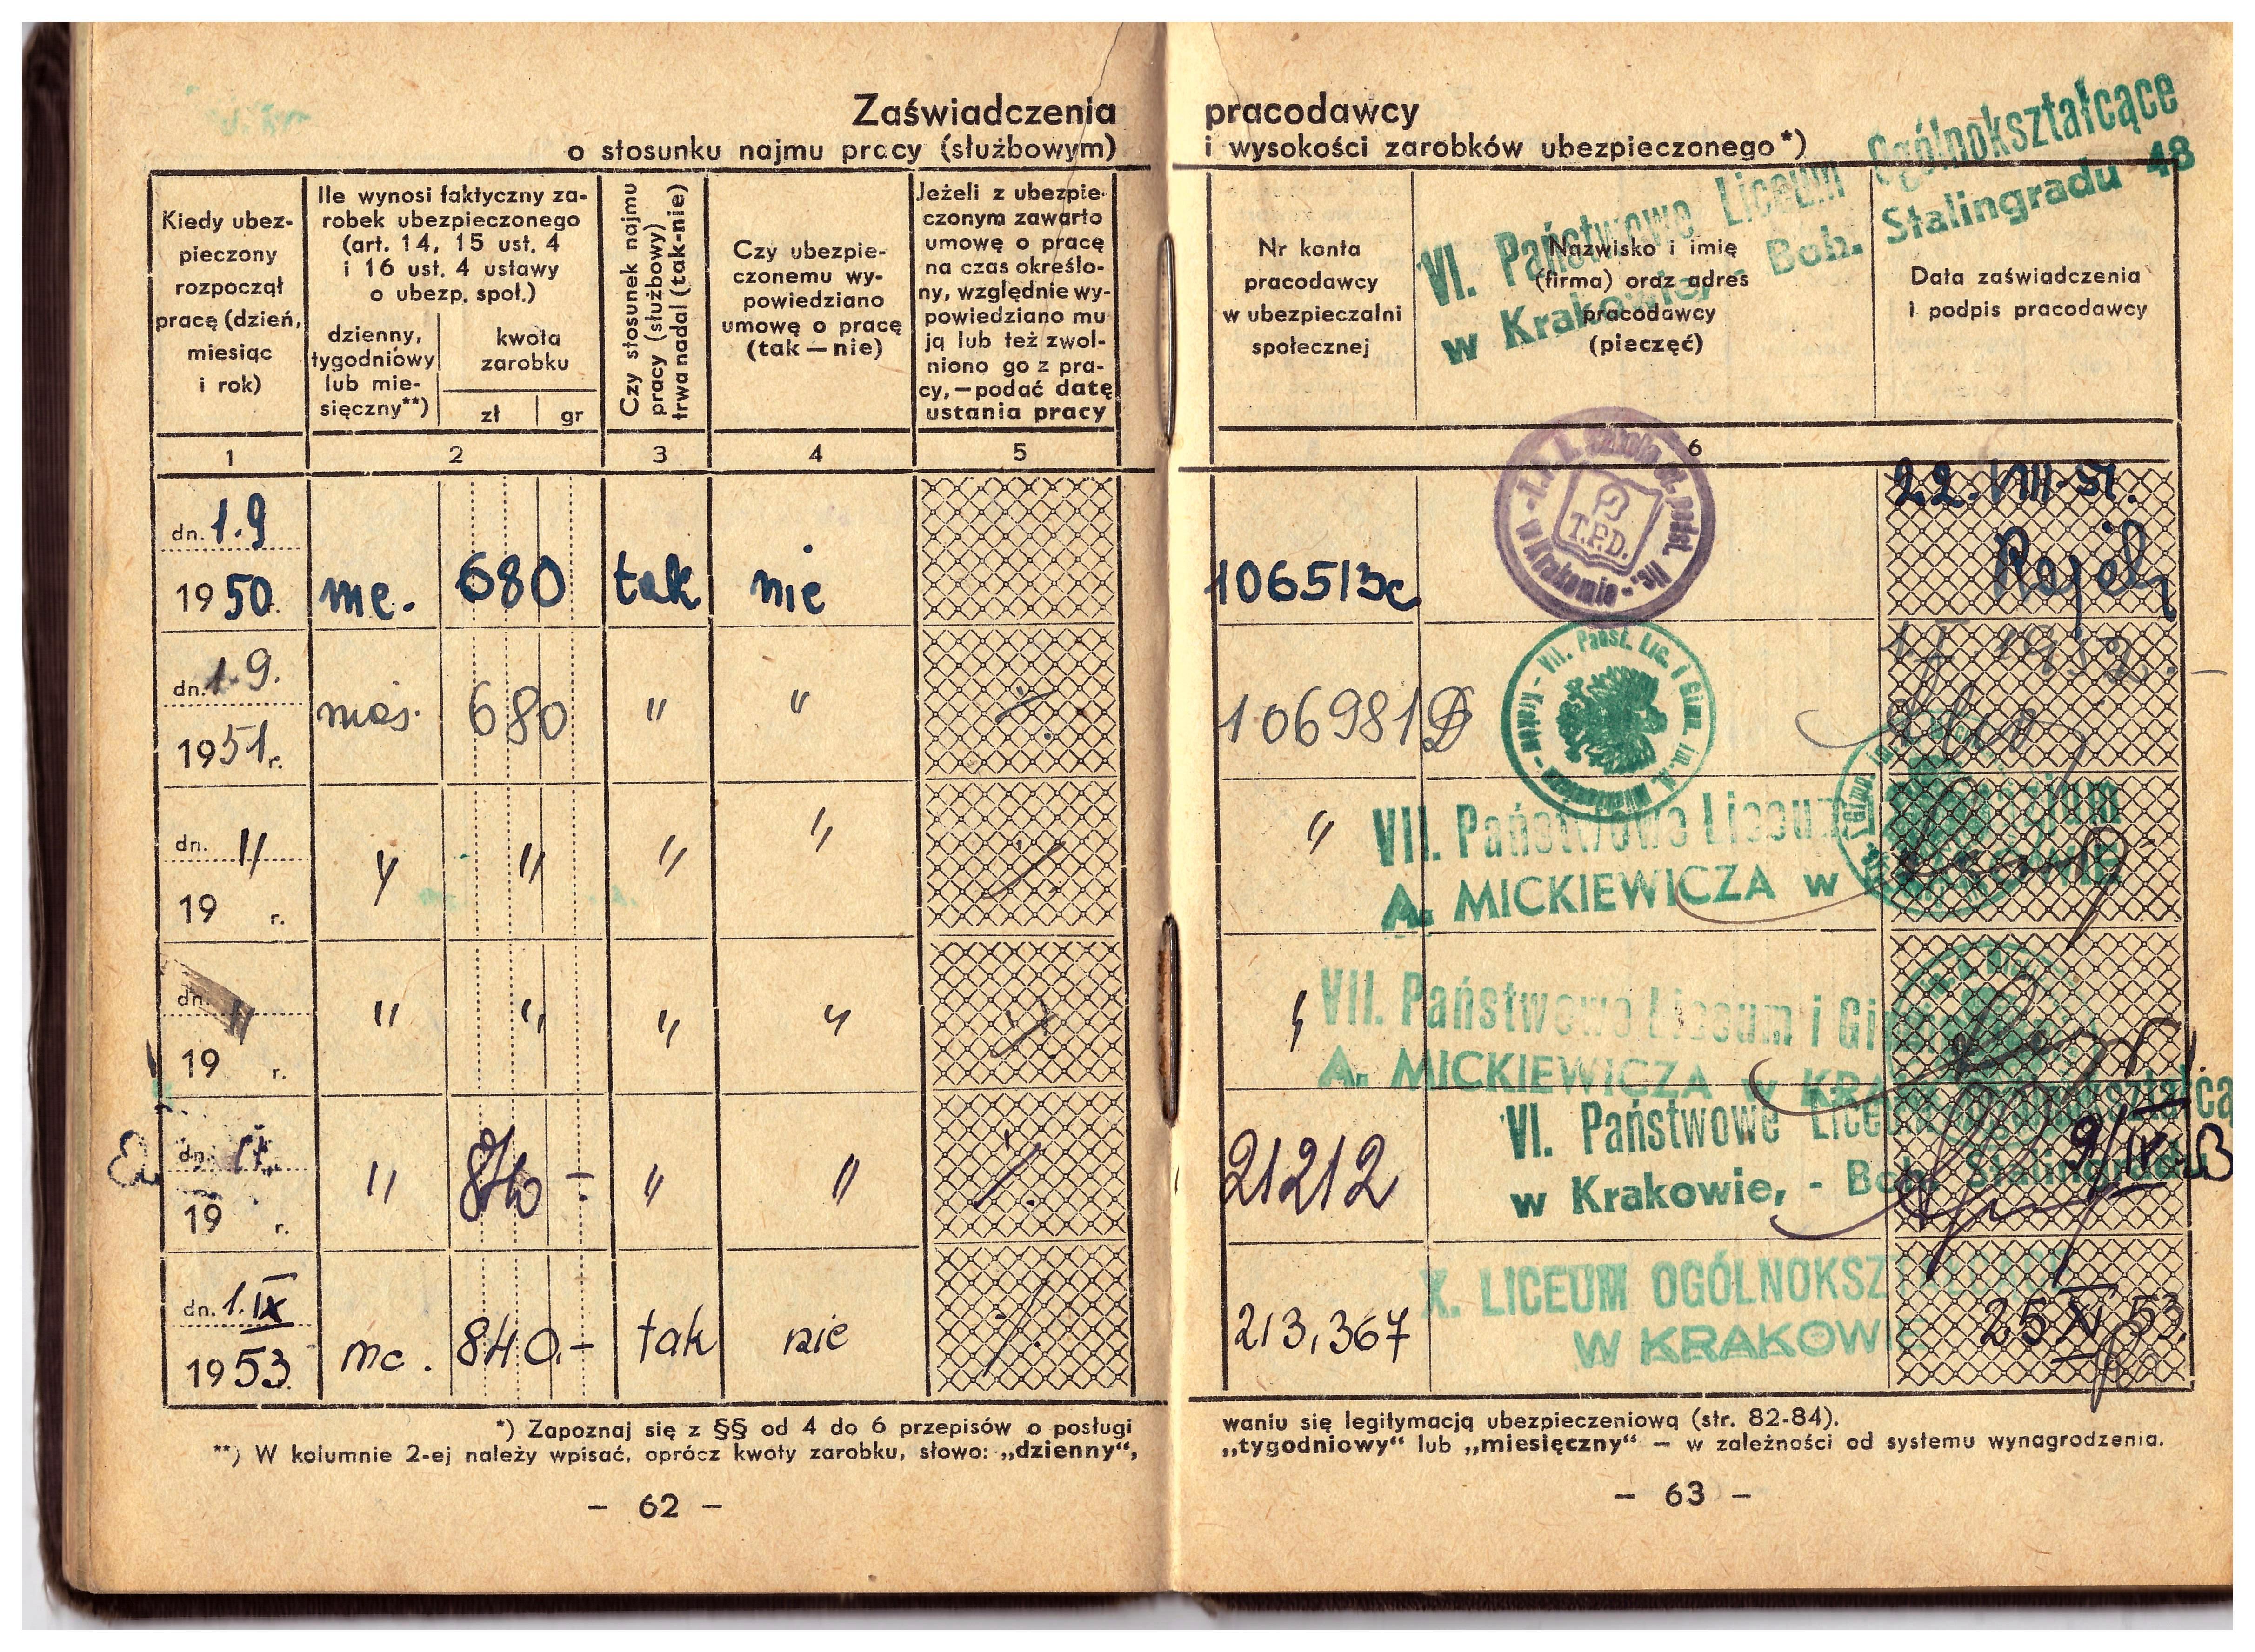 Zaświadczenia pracodawcy
o stosunku najmu pracy (służbowym) i wysokości zarobków ubezpieczonego*)
VI. Państwowe Liceum Ogólnokształcące
w Krakowie, - Boh. Stalingradu 48
Kiedy ubez-
pieczony
rozpoczął
pracę (dzień,
miesiąc
i rok)
Ile wynosi faktyczny za-
robek ubezpieczonego
(art. 14, 15 ust. 4
i 16 ust. 4 ustawy
o ubezp. społ.)
dzienny,
tygodniowy
lub mie-
sięczny**)
kwota
zarobku
zł gr
Czy stosunek najmu
pracy (służbowy)
trwa nadal (tak-nie)
Czy ubezpie-
czonemu wy-
powiedziano
umowę o pracę
(tak — nie)
Jeżeli z ubezpie-
czonym zawarto
umowę o pracę
na czas określo-
ny, względnie wy-
powiedziano mu
ją lub też zwol-
niono go z pra-
cy, — podać datę
ustania pracy
Nr konta
pracodawcy
w ubezpieczalni
społecznej
Nazwisko i imię
(firma) oraz adres
pracodawcy
(pieczęć)
Data zaświadczenia
i podpis pracodawcy
1 2 3 4 5 6
dn. 1.9
1950. mc. 680 tak nie 106513c
T.P.D.
w Krakowie
22.VIII.51.
dn. 1.9.
1951 r. mies. 680 " " 106981
VII. Państ. Lic. i Gimn. im. A. Mickiewicza - Kraków -
dn. "
19 r. " " " " "
VII. Państwowe Liceum
A. MICKIEWICZA w
dn. "
19 r. " " " " "
VII. Państwowe Liceum i
A. MICKIEWICZA w
dn.
19 r. " 840 - " " 21212
VI. Państwowe
w Krakowie, - Boh. Stalingradu
dn. 1.IX
1953 mc. 840.- tak nie 213,367
X. LICEUM
W KRAKOWIE
25 XI 53
*) Zapoznaj się z §§ od 4 do 6 przepisów o posługi waniu się legitymacją ubezpieczeniową (str. 82-84).
**) W kolumnie 2-ej należy wpisać, oprócz kwoty zarobku, słowo: „dzienny“, „tygodniowy“ lub „miesięczny“ — w zależności od systemu wynagrodzenia.
— 62 —
— 63 —